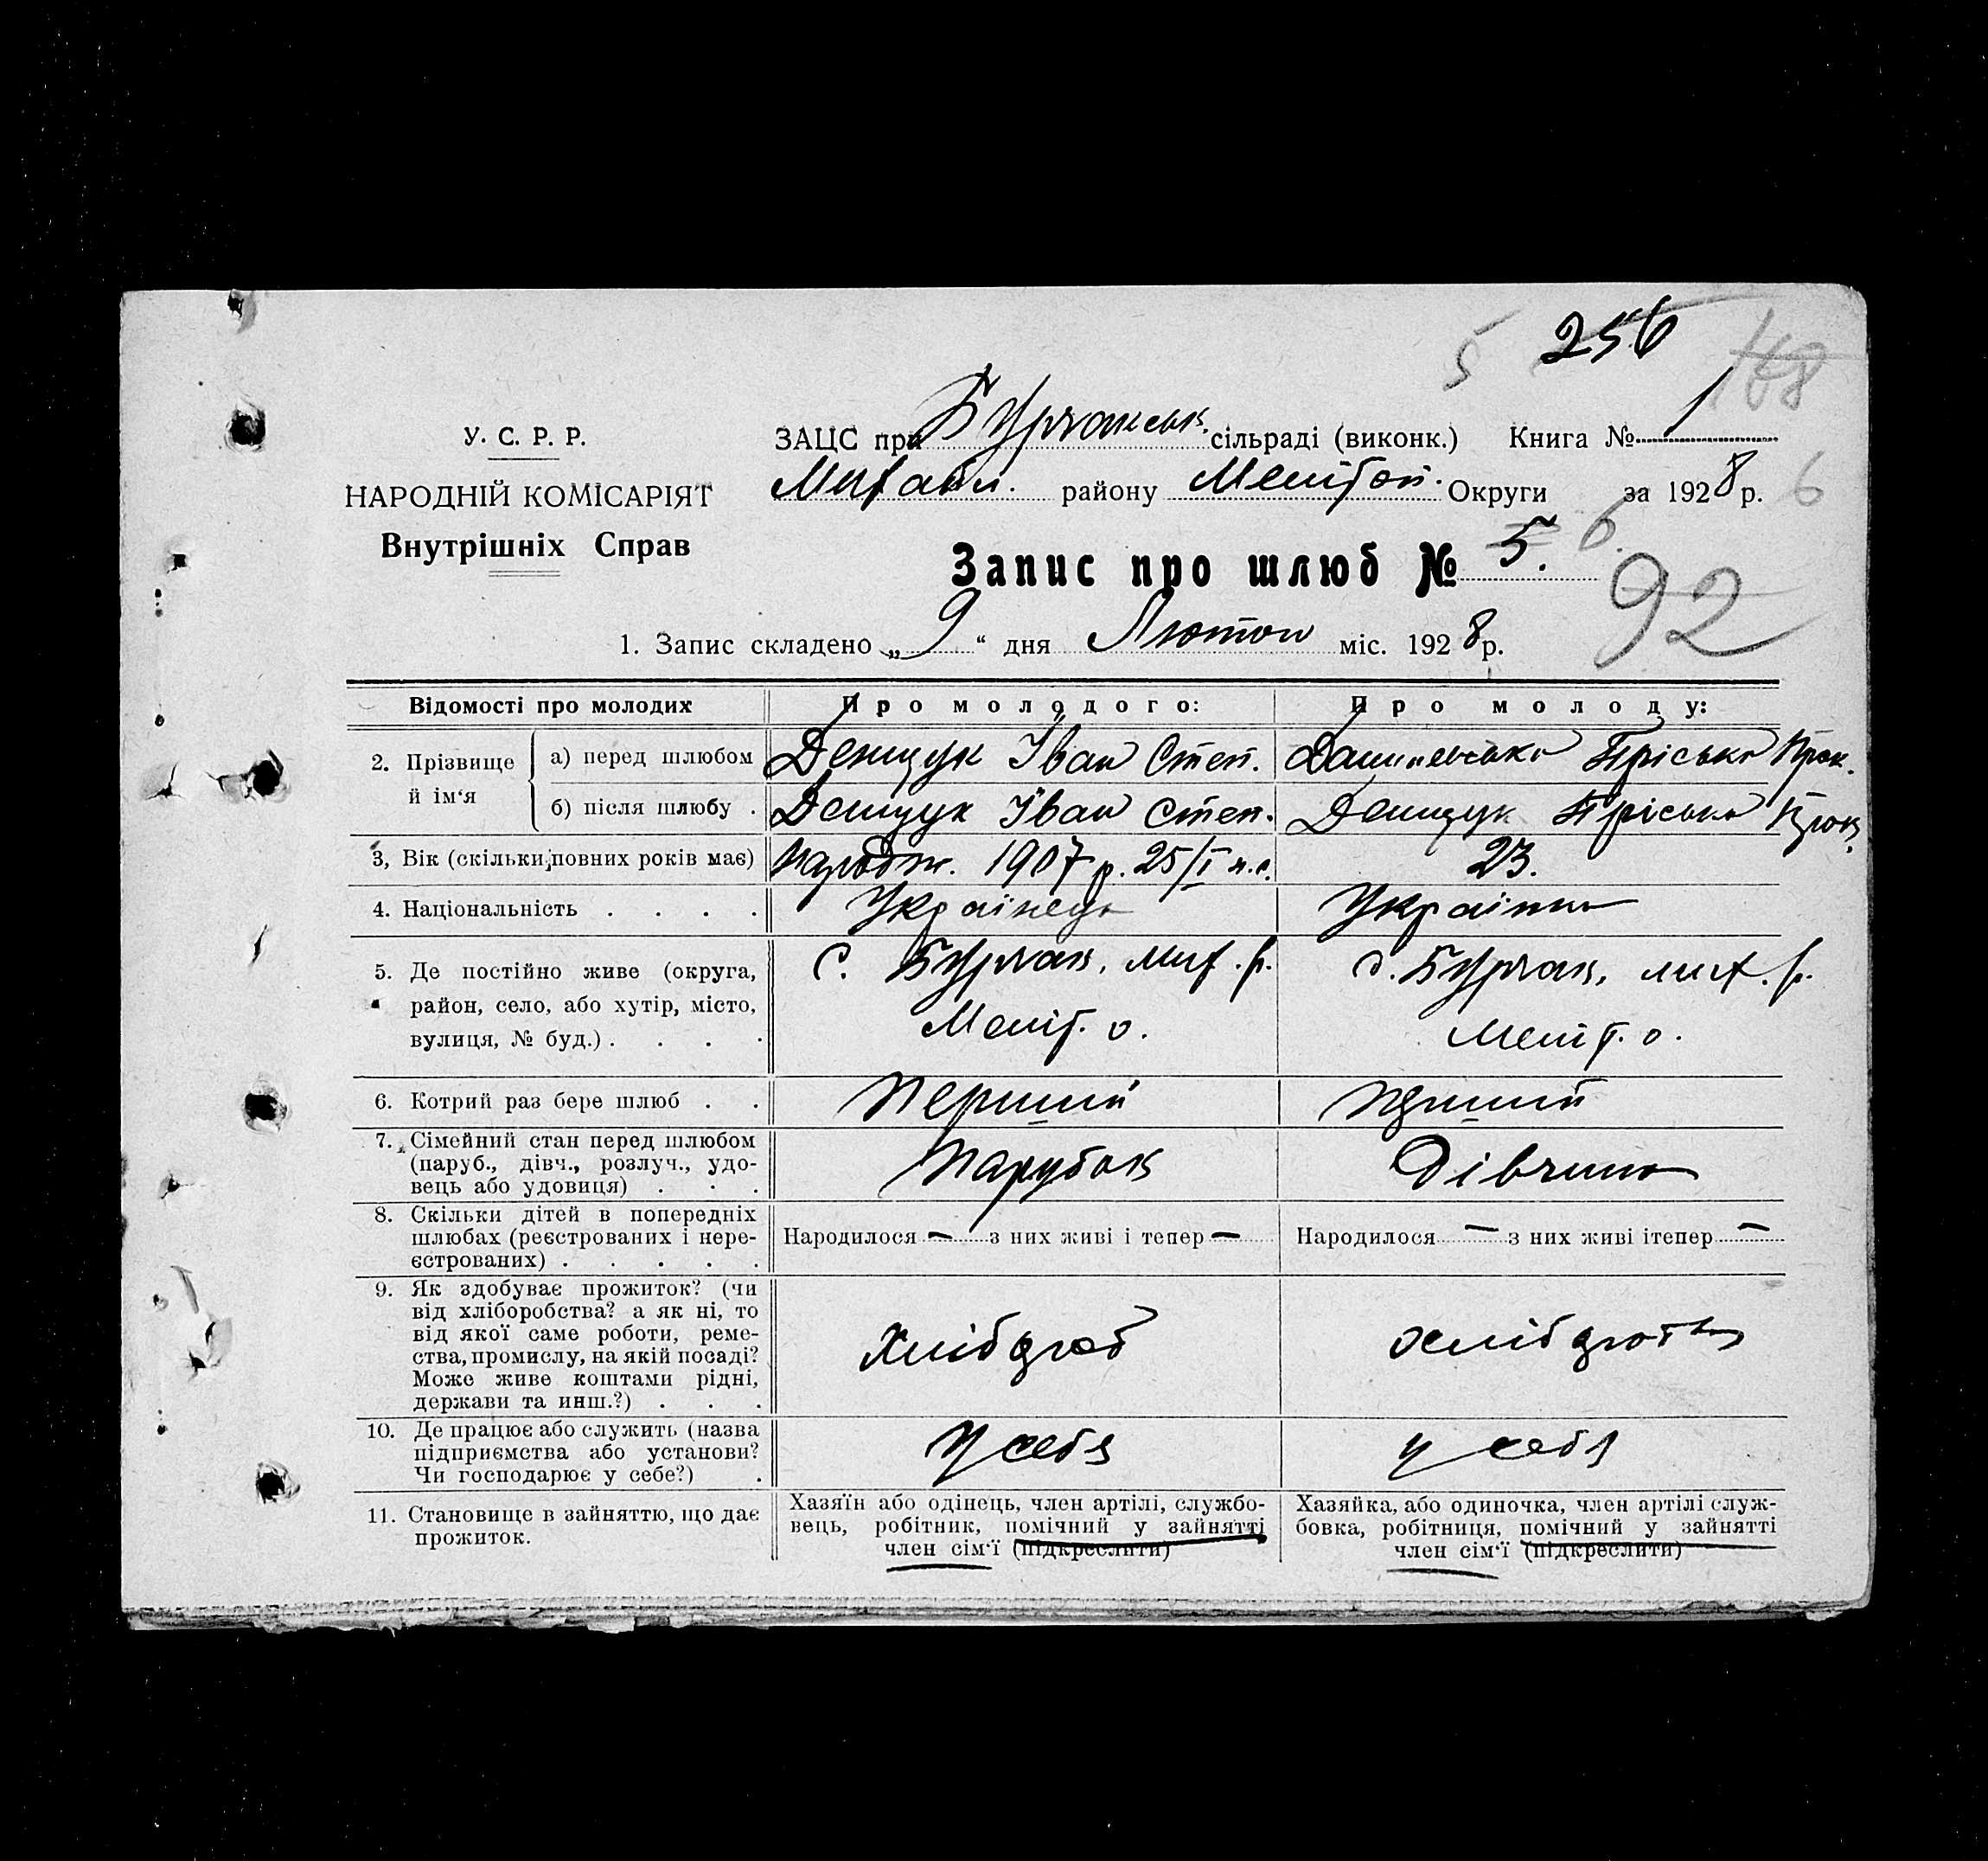 256
5
168
У. С. Р. Р.
ЗАЦС при Бурчакськ. сільраді (виконк.) Книга № 1
НАРОДНІЙ КОМІСАРІЯТ
Михайл. району Мелітоп. Округи за 1928 р. 6
Внутрішніх Справ
Запис про шлюб № 5. 6.
92
1. Запис складено „9“ дня Лютого міс. 1928 р.
Відомості про молодих Про молодого: Про молоду:
2. Прізвище й ім'я
а) перед шлюбом Денщук Іван Степ. Пріська Прок.
б) після шлюбу . Денщук Іван Степ. Денщук Пріська Прок.
3, Вік (скільки повних років має) народж. 1907 р. 25/I н.с. 23.
4. Національність . . . . Українець Українка
5. Де постійно живе (округа,
район, село, або хутір, місто,
вулиця, № буд.) . . . .
с. Бурчак, мих. р.
Меліт. о.
с. Бурчак, мих. р.
Меліт. о.
6. Котрий раз бере шлюб . . Перший Перший
7. Сімейний стан перед шлюбом
(паруб., дівч., розлуч., удо-
вець або удовиця) . . .
Парубок Дівчина
8. Скільки дітей в попередніх
шлюбах (реєстрованих і нере-
єстрованих) . . . . .
Народилося — з них живі і тепер —
Народилося — з них живі ітепер —
9. Як здобуває прожиток? (чи
від хліборобства? а як ні, то
від якої саме роботи, реме-
ства, промислу, на якій посаді?
Може живе коштами рідні,
держави та инш.?) . . .
Хлібороб хліборобка
10. Де працює або служить (назва
підприємства або установи?
Чи господарює у себе?) .
У себя у себя
11. Становище в зайняттю, що дає
прожиток.
Хазяїн або одінець, член артілі, службо-
вець, робітник, помічний у зайнятті
член сім'ї (підкреслити)
Хазяйка, або одиночка, член артілі служ-
бовка, робітниця, помічний у зайнятті
член сім'ї (підкреслити)